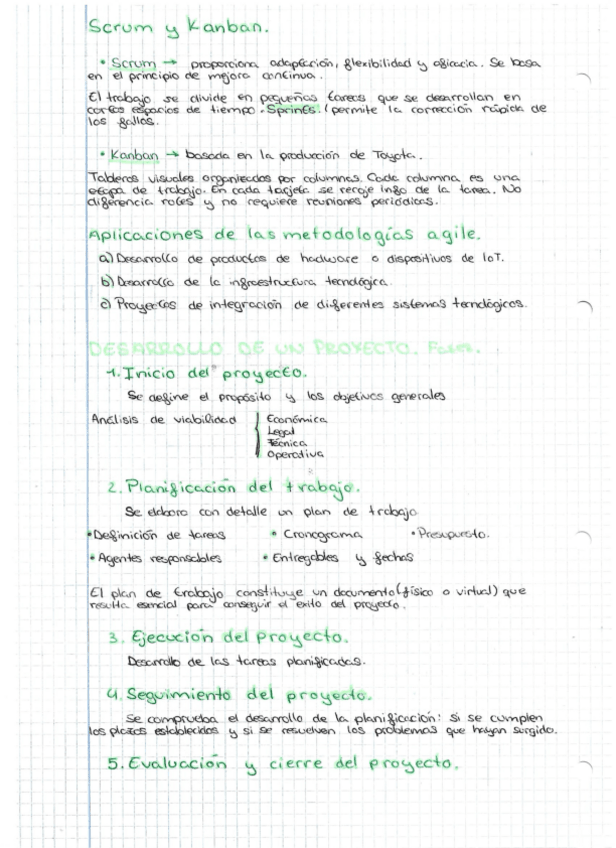 Scrum y Kanban.
• Scrum → proporciona adaptación, flexibilidad y eficacia. Se basa
en el principio de mejora continua.
El trabajo se divide en pequeñas tareas que se desarrollan en
cortos espacios de tiempo. Sprints. (permite la corrección rápida de
los fallos.
• Kanban → basada en la producción de Toyota.
Tableros visuales organizados por columnas. Cada columna es una
etapa de trabajo. En cada tarjeta se recoje info de la tarea. No
diferencia roles y no requiere reuniones periódicas.
Aplicaciones de las metodologías agile.
a) Desarrollo de productos de hadware o dispositivos de IoT.
b) Desarrollo de la infraestructura tecnológica.
c) Proyectos de integración de diferentes sistemas tecnológicos.
DESARROLLO DE UN PROYECTO. Fases.
1. Inicio del proyecto.
Se define el propósito y los objetivos generales
Análisis de viabilidad
Económica
Legal
Técnica
Operativa
2. Planificación del trabajo.
Se elabora con detalle un plan de trabajo
• Definición de tareas • Cronograma • Presupuesto.
• Agentes responsables • Entregables y fechas
El plan de trabajo constituye un documento (físico o virtual) que
resulta esencial para conseguir el exito del proyecto.
3. Ejecución del proyecto.
Desarrollo de las tareas planificadas.
4. Seguimiento del proyecto.
Se comprueba el desarrollo de la planificación: si se cumplen
los plazos establecidos y si se resuelven los problemas que hayan surgido.
5. Evaluación y cierre del proyecto.